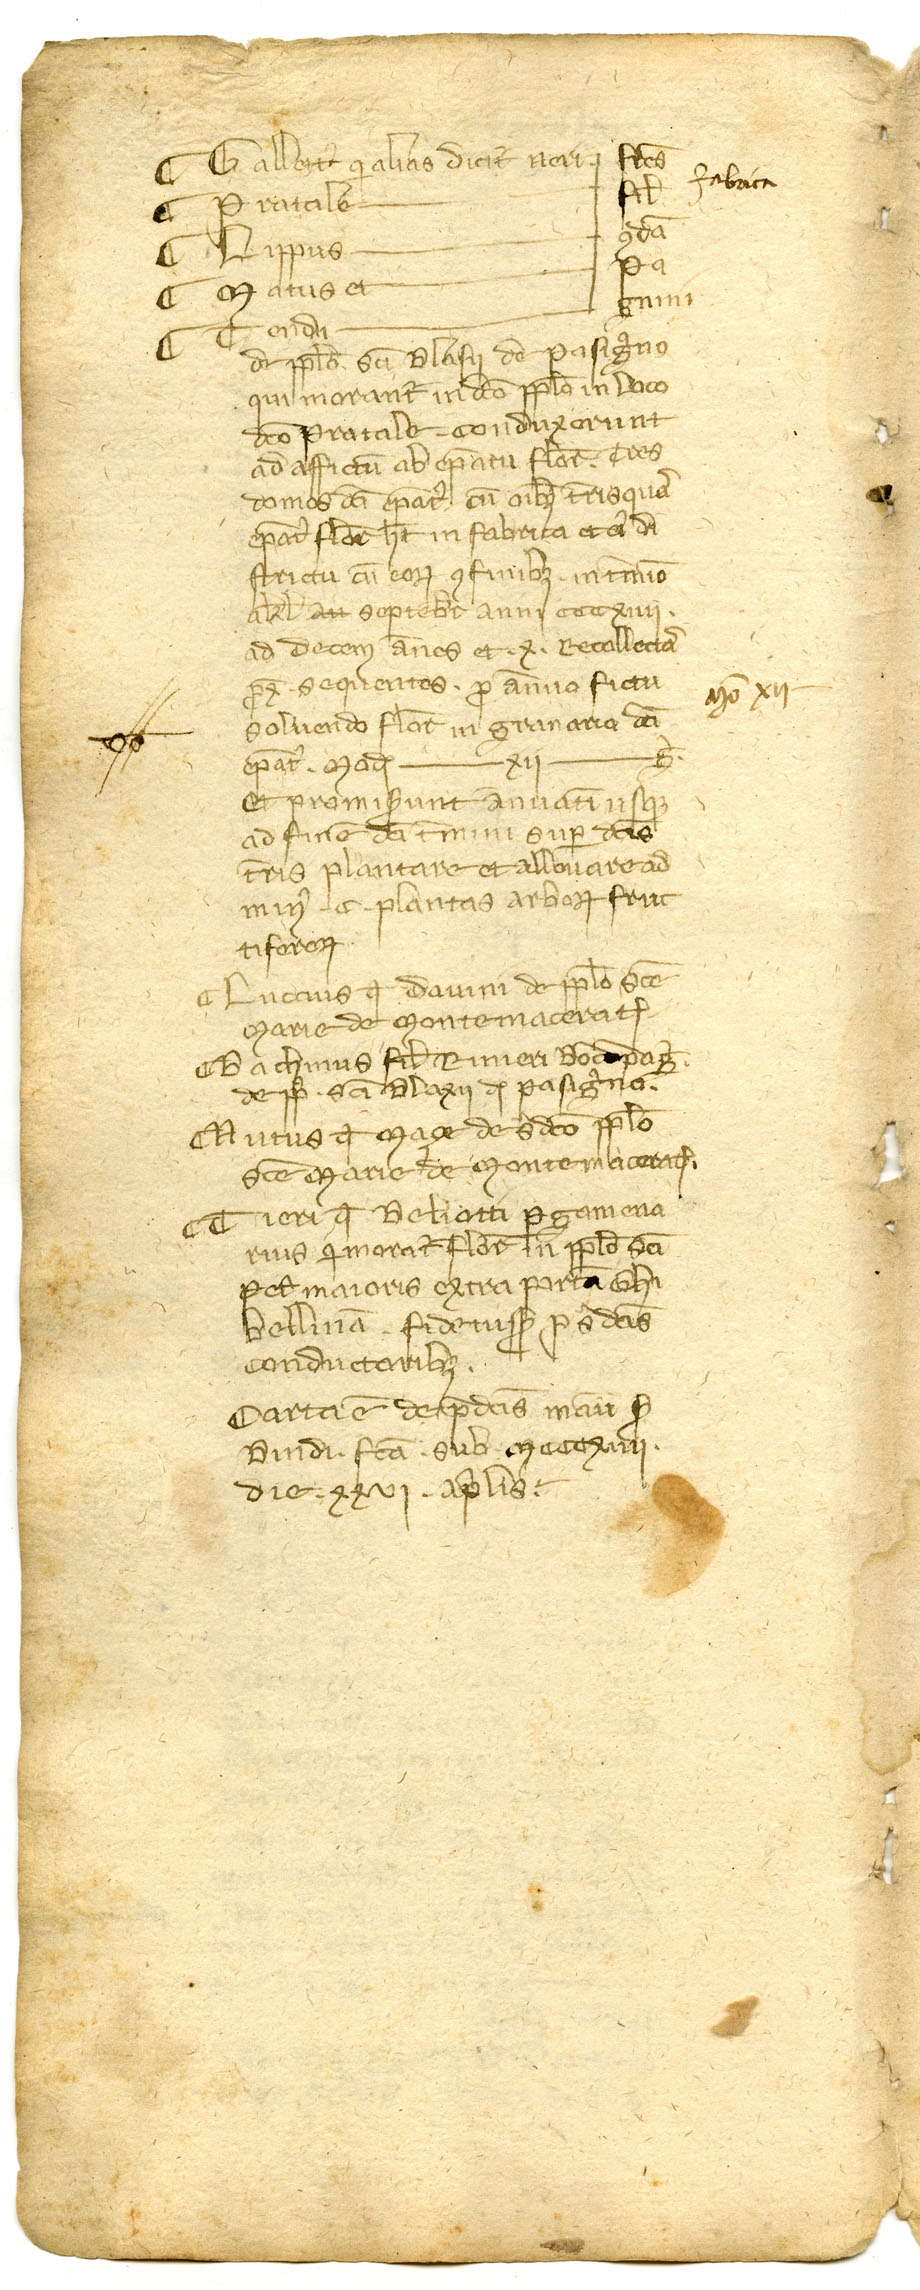 Galbert' q alias dicit' neri fr̄es
Pratale fil' fabrica
Lippus ꝯdā
Matus et Pa
Tendi gnini
de pp̄lo sc̄i Blasii de Pasig̃no
qui morant' in dc̄o pp̄lo in loco
dc̄o Pratale conduxerunt
ad affictū ab ep̄atu flor̄. tres
domos dc̄i ep̄at'. cū oīb; t̄ris quas
ep̄at' flor̄ h̄t in fabrica et ei' di
strictu cū eoꝝ ꝯfinib; in t̄mio
a kl' au septēbr̄ anni cccxiiii.
ad decem ān̄os et .x. recollectas
ꝓx̄. sequentes. ꝓ anno fictu
solvendo flor̄ in granario dc̄i mō xii
ep̄at'. mod xii g̃.
Et promis̄unt annuati usq;
ad finē dc̄i t̄mini sup dc̄is
t̄ris plantare et allevare ad
min' .c. plantas arboꝝ fruc
tiferoꝝ
Luccius q̄ Davini de pp̄lo sc̄e
Marie de Montemacerat
Bachinus fil' Rinieri
de pp̄. sc̄i Blaxii d Pasig̃no.
Mutus q̄ de s̄dc̄o pp̄lo
sc̄e Marie de Montemacerat.
Tieri q̄ Beliotti ꝑgamena
rius q morat' Flor̄ in pp̄lo sc̄i
Pet' maioris extra portā Ghi
bellinā. fideiuss̄ ꝓ s̄dc̄is
conductorib;.
Carta ē de p̄dc̄is manu s̄
Bindi. fc̄a. sub. mcccxiiii.
die. xxvi. ap̄lis.